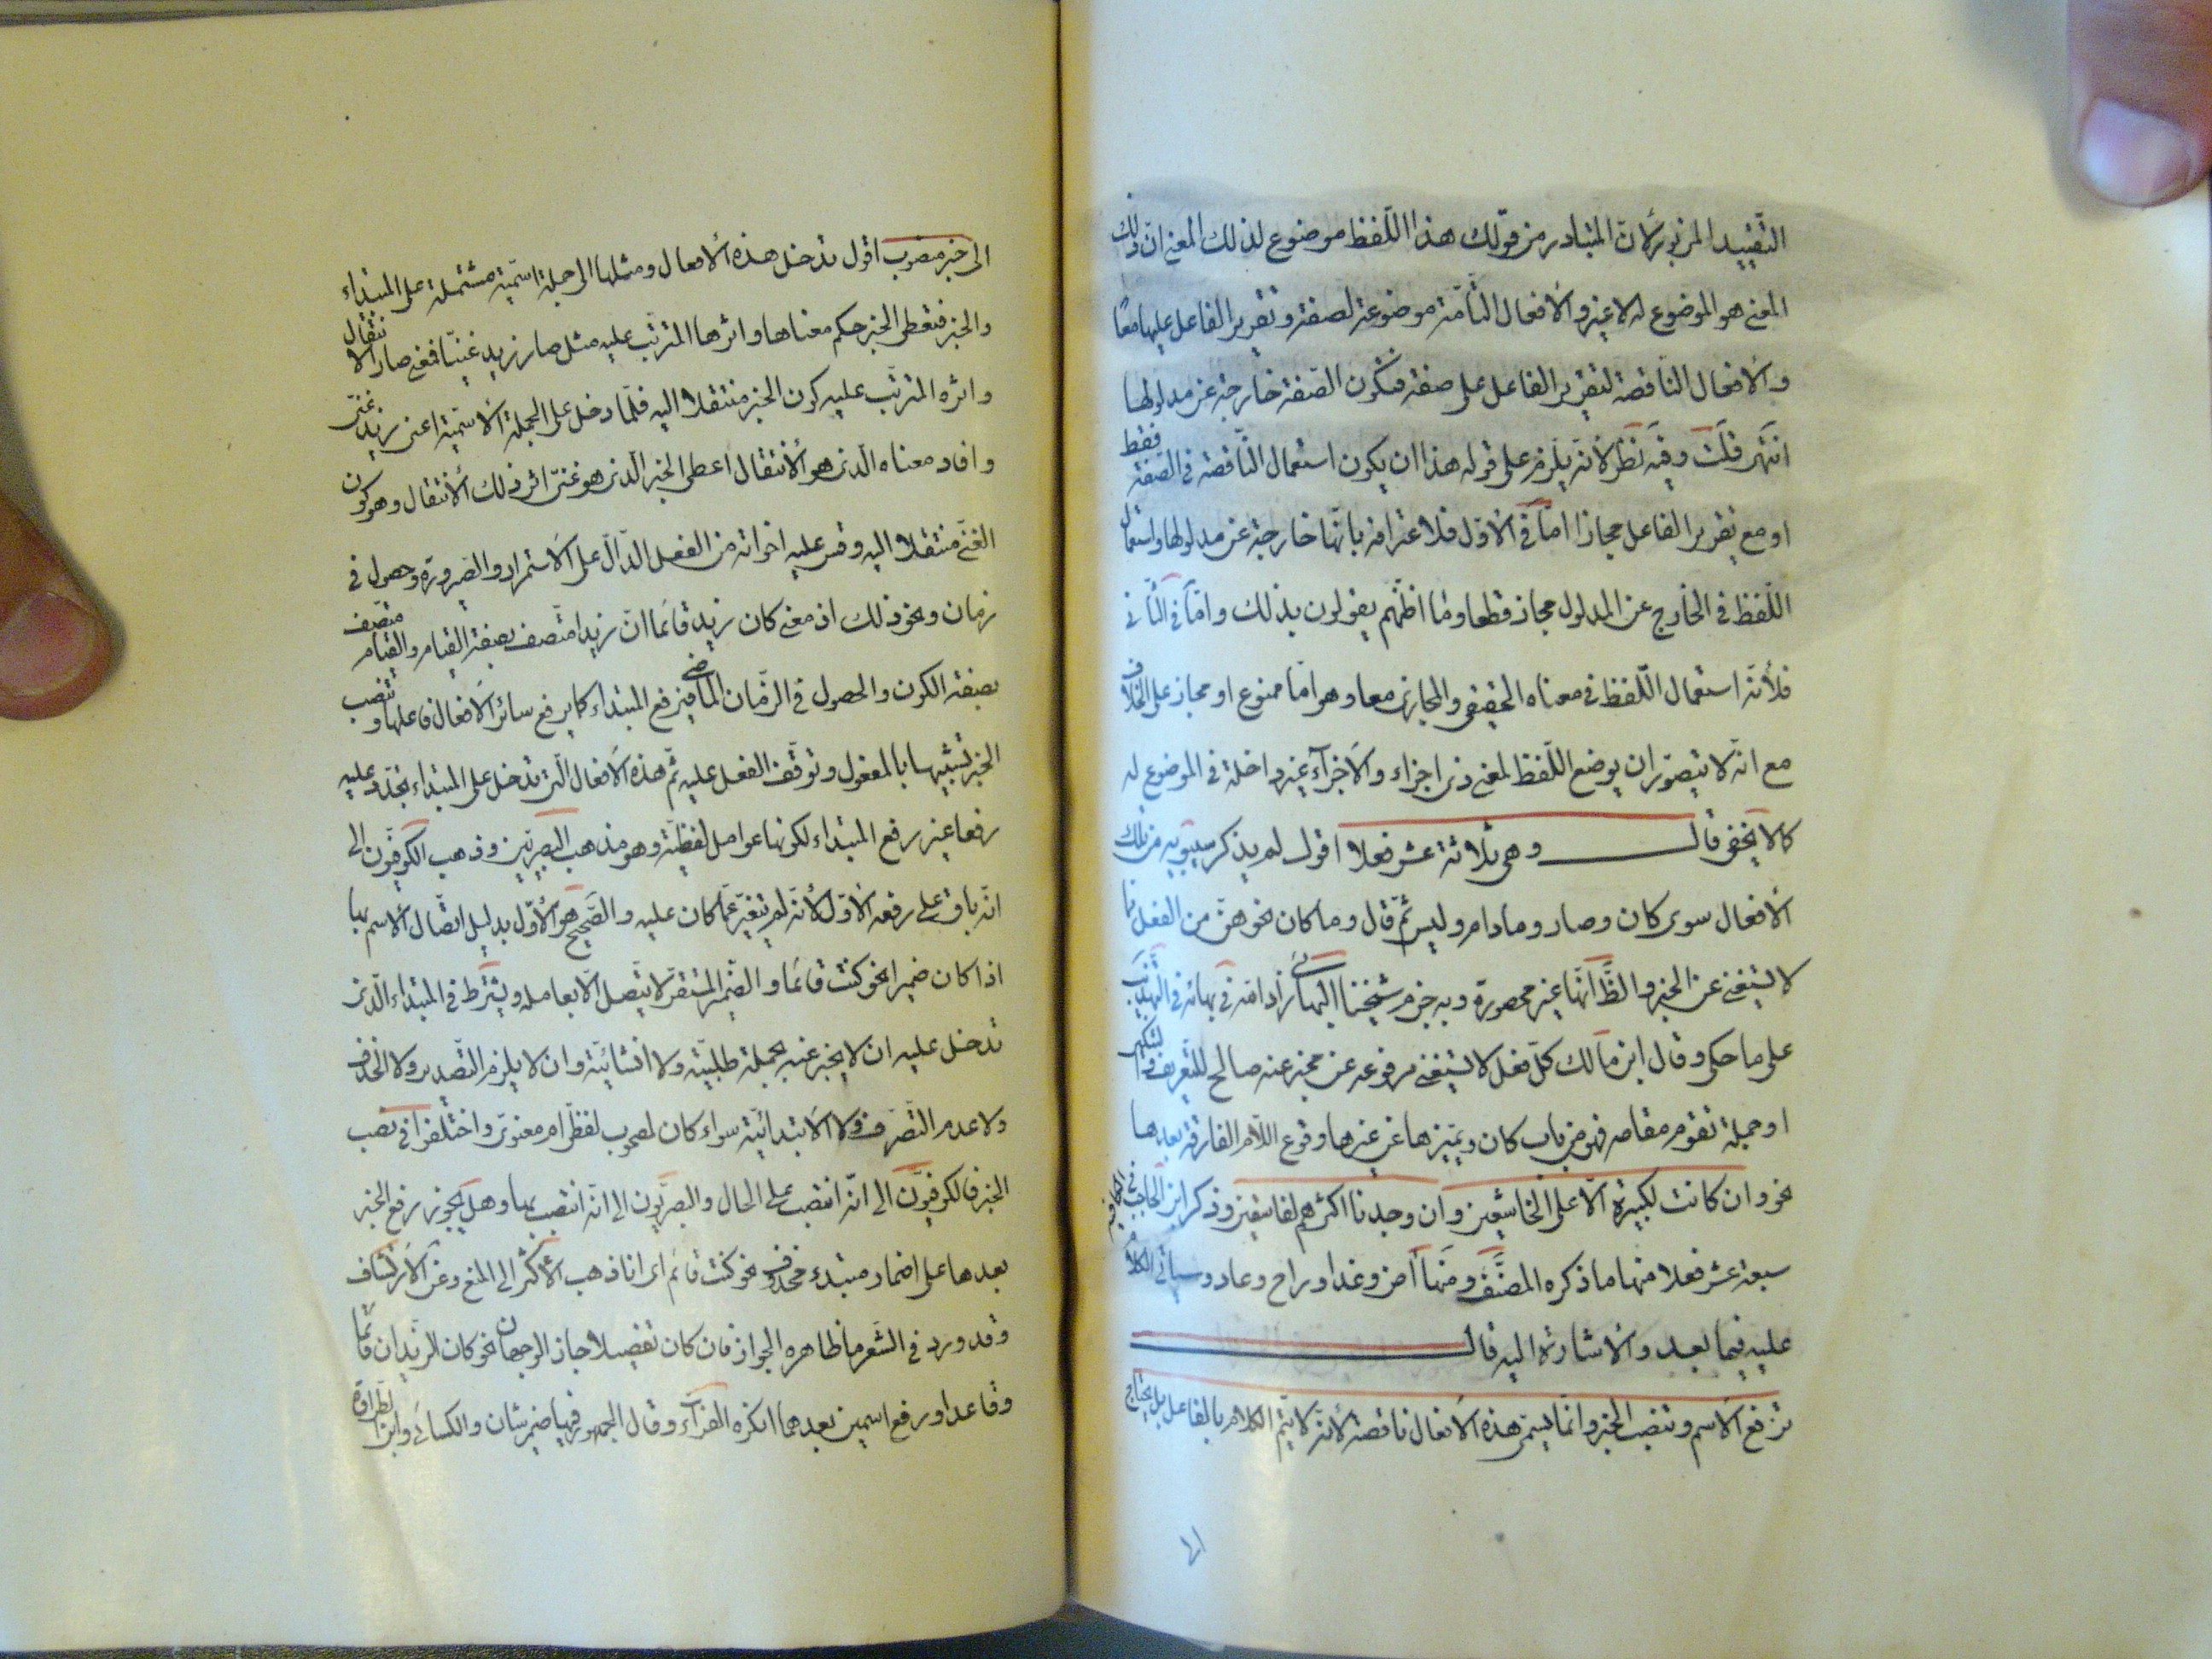 التقييد المزبور لان المتبادر من قولك هذا اللفظ موضوع لذلك المعنى ان ذلك
المعنى هو الموضوع له لا غير والافعال التامة موضوعة لصفة وتقرير الفاعل عليها معا
والافعال الناقصة لتقرير الفاعل على صفة فتكون الصفة خارجة عن مدلولها
انتهى قلت وفيه نظر لانه يلزم على قوله هذا ان يكون استعمال الناقصة في الصفة فقط
او مع تقرير الفاعل مجازا اما في الاول فلاعترافه بانها خارجة عن مدلولها واستعمال
اللفظ في الخارج عن المدلول مجاز قطعا وما اظنهم يقولون بذلك واما في الثاني
فلأنه استعمال اللفظ في معناه الحقيقي والمجازي معا وهو اما ممنوع او مجاز على الخلاف
مع انه لا يتصور ان يوضع اللفظ لمعنى ذي اجزاء والاجزآء غير داخلة في الموضوع له
كما لا يخفى قال وهي ثلاثة عشر فعلا اقول لم يذكر سيبويه من تلك
الافعال سوى كان وصار ومادام وليس ثم قال وما كان نحوهن من الفعل مما
لا يستغنى عن الخبر والظ انها غير محصورة وبه جزم شيخنا البهائي في التهذيب
على ما حكى وقال ابن مالك كل فعل لا يستغنى مرفوعه عن مخبر عنه صالح للتعريف والتنكير
او جملة تقوم مقامه فهو من باب كان ويميزها عن غيرها وقوع اللام الفارقة بعدها
نحو وان كانت لكبيرة الا على الخاشعين وان وجدنا اكثرهم لفاسقين وذكر ابن الحاجب في الكافية
سبعة عشر فعلا منها ما ذكره المصنف ومنها آض وغدا وراح وعاد وسيأتي الكلام
عليه فيما بعد والاشارة اليه قال
ترفع الاسم وتنصب الخبر وانما يسمى هذه الافعال ناقصة لأنه لا يتم الكلام بالفاعل بل يحتاج
الى خبر منصوب اقول تدخل هذه الافعال ومثلها الى جملة اسمية مشتملة على المبتداء
والخبر فتعطى الخبر حكم معناها واثرها المترتب عليه مثل صار زيد غنيا فمعنى صار الانتقال
واثره المترتب عليه كون الخبر منتقلا اليه فلما دخل على الجملة الاسمية اعنى زيد غنى
وافاد معناه الذى هو الانتقال اعطى الخبر الذى هو غنى اثر ذلك الانتقال وهو كون
الغنى منتقلا اليه وقس عليه اخواته من الفعل الدال على الاستمرار والصيرورة وحصول في
زمان ونحو ذلك اذ معنى كان زيد قائما ان زيدا متصف بصفة القيام والقيام متصف
بصفة الكون والحصول في الزمان الماضي فيرفع المبتداء كما يرفع سائر الافعال فاعلها وتنصب
الخبر تشبيها بالمفعول وتوقف الفعل عليه ثم هذه الافعال التى تدخل على المبتداء يتجدد عليه
رفعا غير رفع المبتداء لكونها عوامل لفظية وهو مذهب البصريين وذهب الكوفيون الى
انه باق على رفعه الاول لأنه لم يتغير عما كان عليه والصحيح هو الاول بدليل اتصال الاسم بها
اذا كان ضميرا نحو كنت قائما والضمير المستقر لا يتصل الا بعامله ويشترط في المبتداء الذى
تدخل عليه ان لا يخبر عنه بجملة طلبية ولا انشائية وان لا يلزم التصدير ولا الحذف
ولا عدم التصرف ولا الابتدائية سواء كان لمصحوب لفظى ام معنوى واختلفوا في نصب
الخبر فالكوفيون الى انه انتصب على الحال والبصريون الى انه انتصب بها وهل يجوز رفع الخبر
بعدها على اضمار مبتدء محذوف نحو كنت قائم اى انا ذهب الاكثر الى المنع وعن الارتشاف
وقد ورد في الشعر ما ظاهره الجواز فان كان تفصيلا جاز الوجهان نحو كان الزيدان قائما
وقاعدا ورفع اسمين بعدهما انكره الفراء وقال الجمهور فيها ضمير شان والكسائي وابن الطراوة